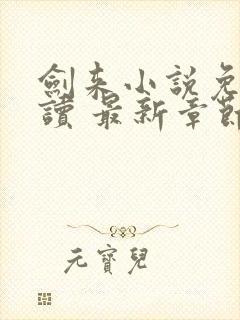 劍来小説免
讀 最新章節
元寶兒